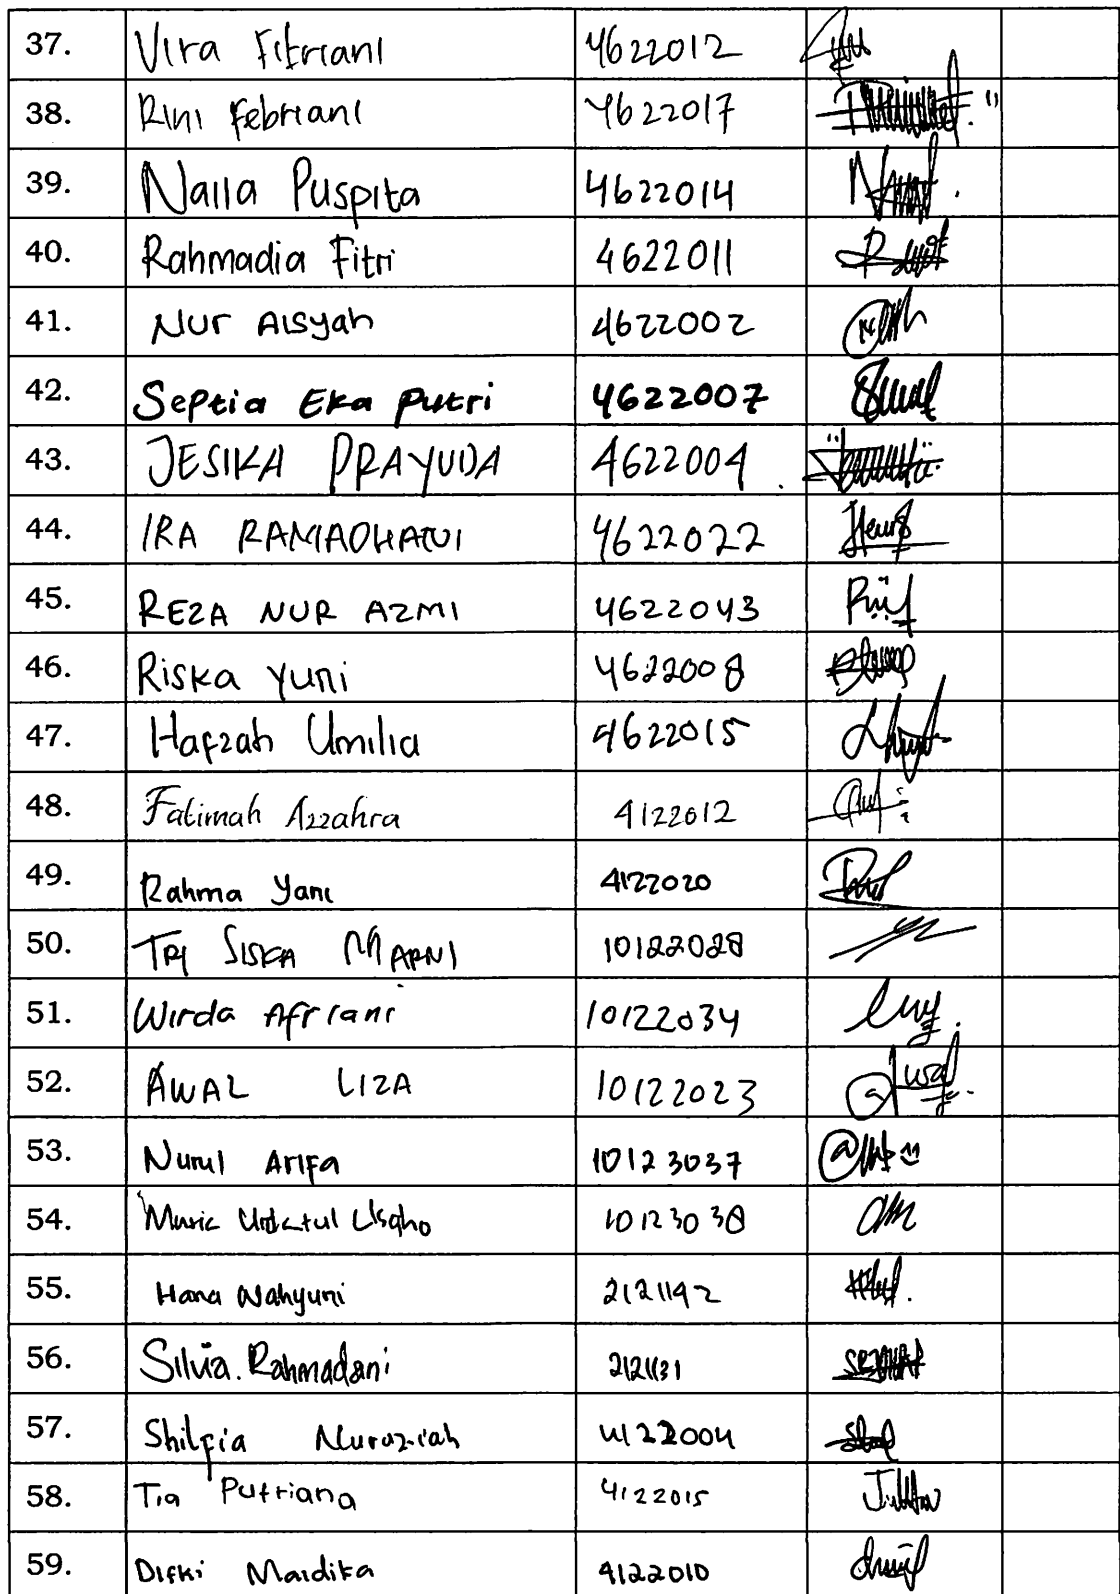 37. Vira Fitriani 4622012
38. Rini Febriani 4622017
39. Naila Puspita 4622014
40. Rahmadia Fitri 4622011
41. Nur Aisyah 4622002
42. Septia Eka Putri 4622007
43. JESIKA PRAYUDA 4622004
44. IRA RAMADHANI 4622022
45. REZA NUR AZMI 4622043
46. Riska Yuni 4622008
47. Hafzah Umilia 4622015
48. Fatimah Azzahra 4122012
49. Rahma Yani 4122020
50. TRI SISKA MARNI 10122028
51. Wirda Afriani 10122034
52. AWAL LIZA 10122023
53. Nurul Arifa 10123037
54. 10123038
55. Hana Wahyuni 2121142
56. Silvia. Rahmadani 2121131
57. Shilfia Nuraziah 4122004
58. Tia Putriana 4122015
59. Difki Mardika 4122010